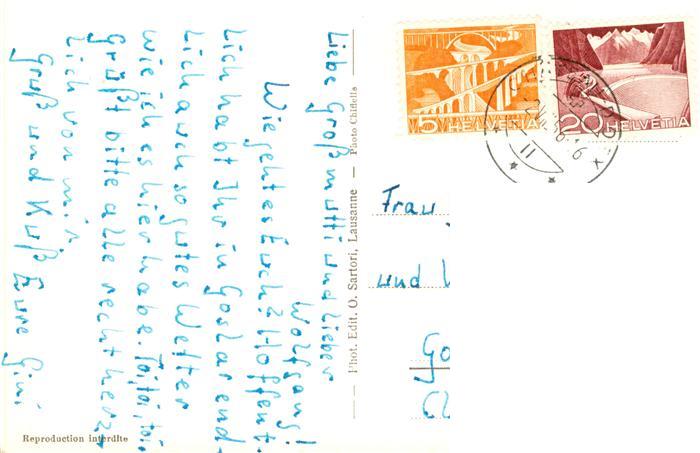 Liebe Großmutti und lieber
Wolfgang!
Wie geht es Euch? Hoffent-
lich habt Ihr in Goslar end-
lich auch so gutes Wetter
wie ich es hier habe. Toi, toi, toi.
Grüßt bitte alle recht herz-
lich von mir.
Gruß und Kuß Eure Gini
Reproduction interdite
Phot. Edit. O. Sartori, Lausanne — Photo Chiffelle
5 HELVETIA
20 HELVETIA
Frau
und
Go